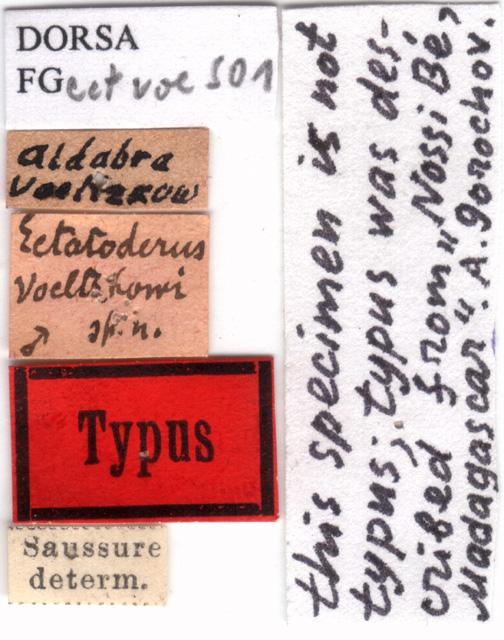 DORSA
FG ect voe S01
aldabra
Voeltzkow
Ectatoderus
Voeltzkowi
♂ sp. n.
Typus
Saussure
determ.
this specimen is not
typus; typus was des-
cribed from "Nossi Bé,
Madagascar". A. Gorochov.